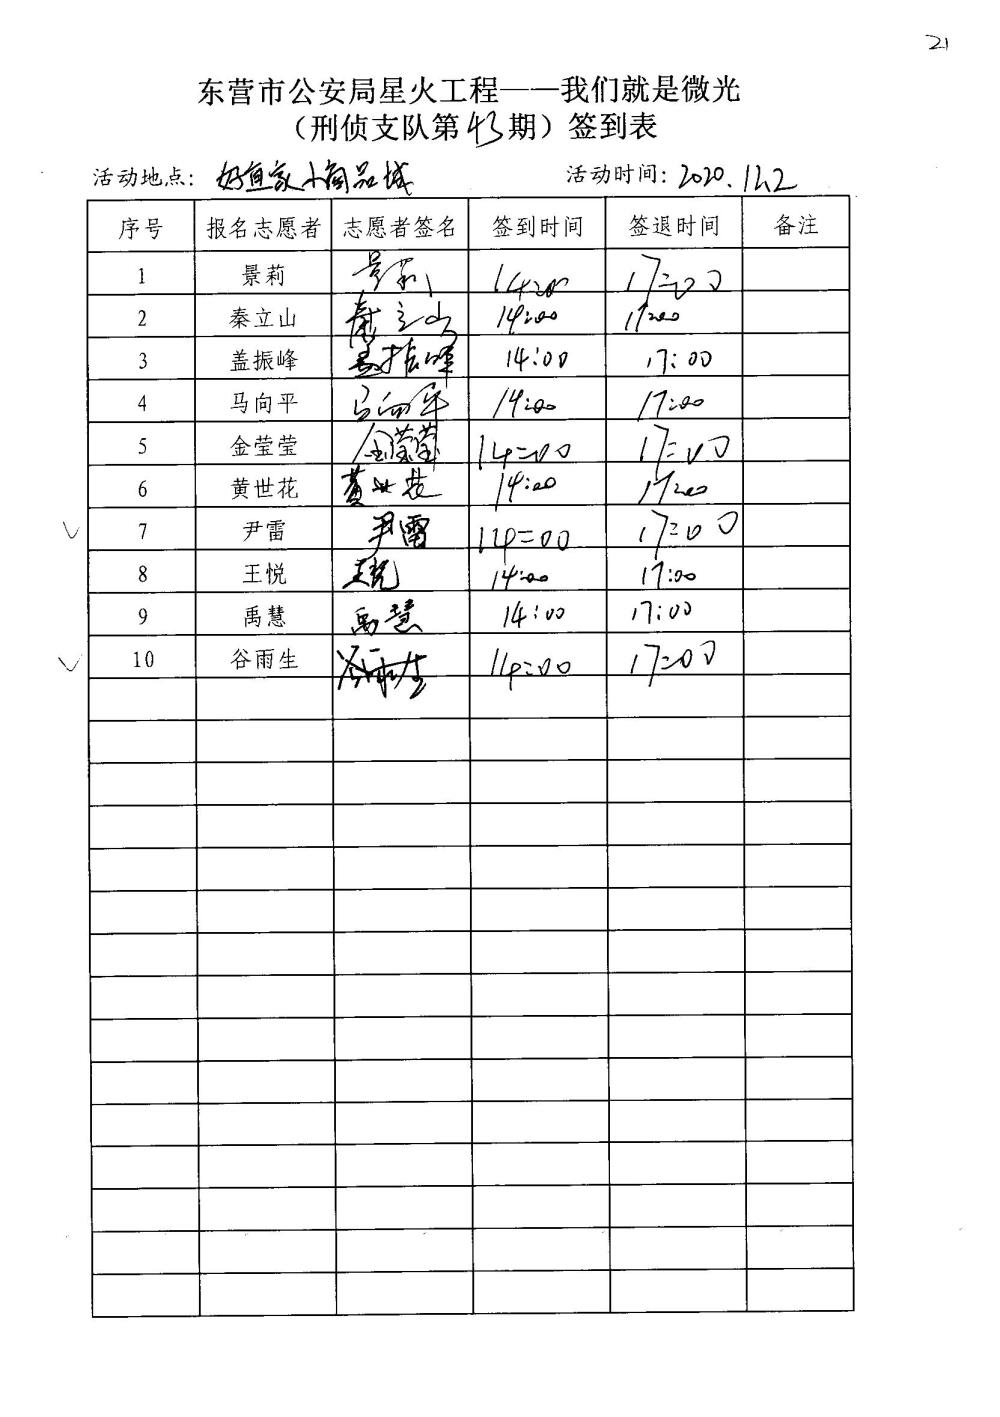 21
东营市公安局星火工程——我们就是微光
（刑侦支队第43期）签到表
活动地点：好宜家小商品城 活动时间：2020.12.2
序号 报名志愿者 志愿者签名 签到时间 签退时间 备注
1 景莉 景莉 14:00 17:00
2 秦立山 秦立山 14:00 17:00
3 盖振峰 盖振峰 14:00 17:00
4 马向平 马向平 14:00 17:00
5 金莹莹 金莹莹 14:00 17:00
6 黄世花 黄世花 14:00 17:00
7 尹雷 尹雷 14:00 17:00
8 王悦 王悦 14:00 17:00
9 禹慧 禹慧 14:00 17:00
10 谷雨生 谷雨生 14:00 17:00